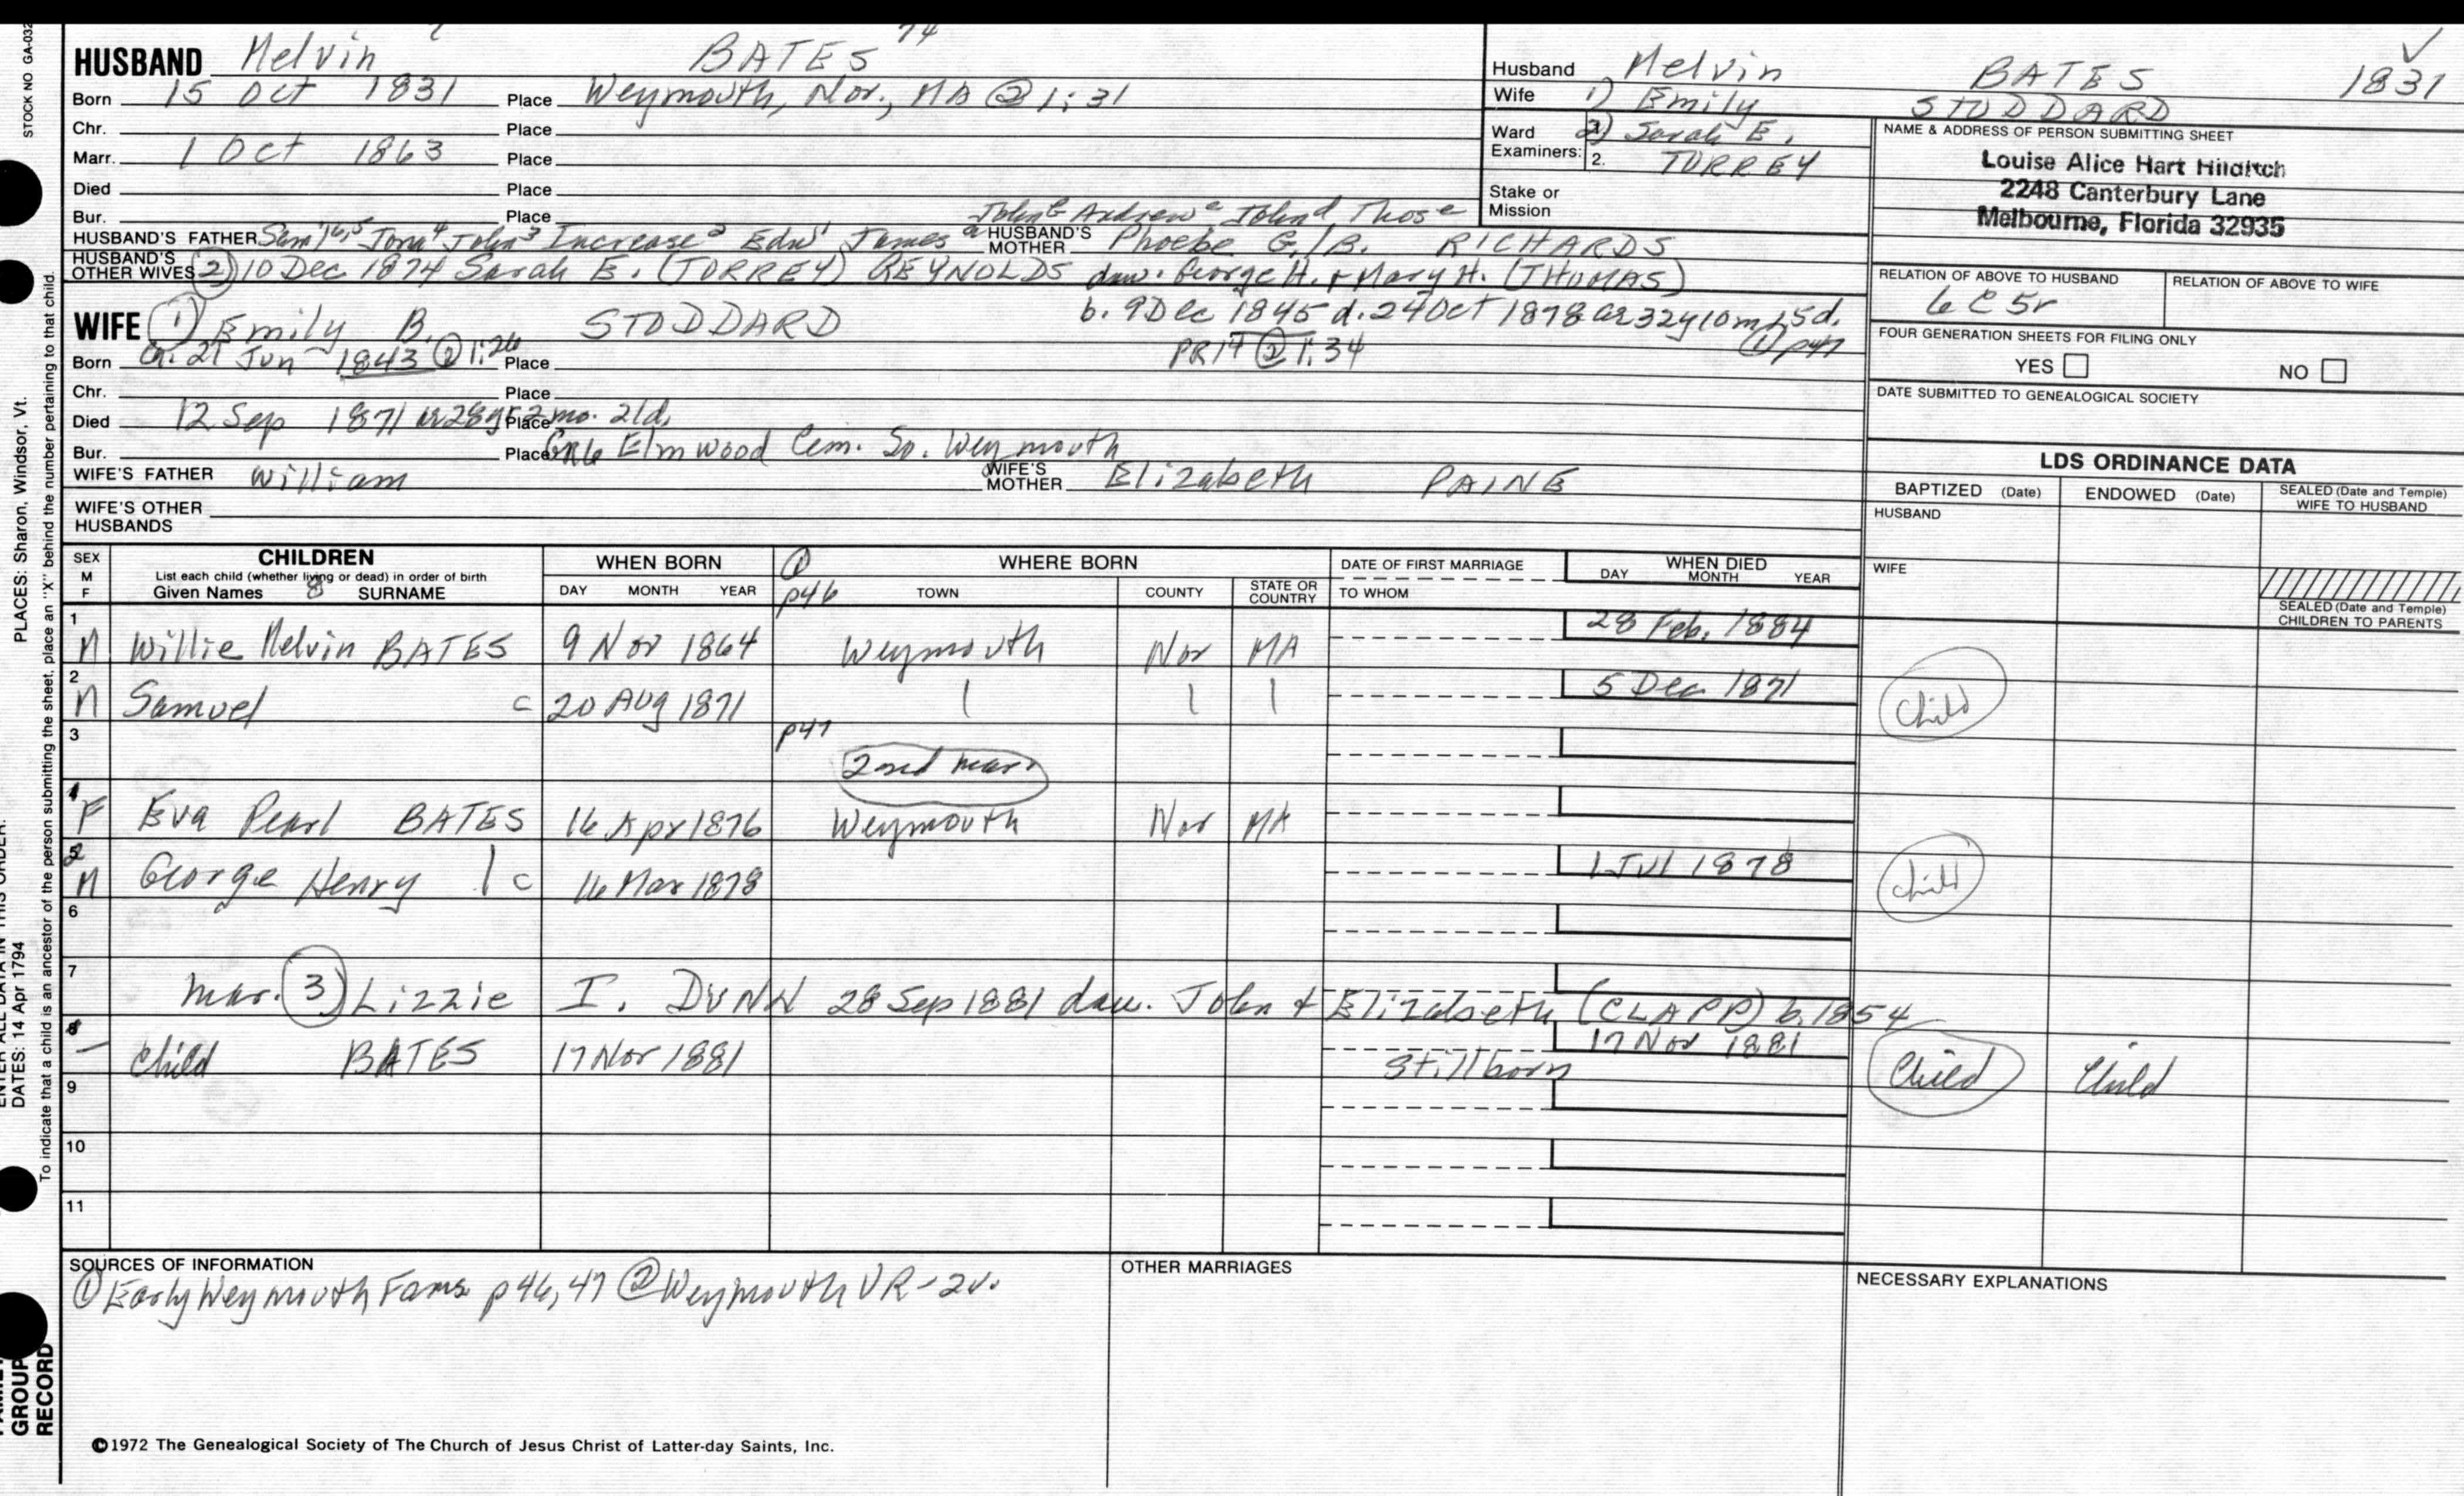 STOCK NO GA-032
HUSBAND Melvin BATES 74
Born 15 Oct 1831 Place Weymouth, Nor., MA @ 1:31
Chr. Place
Marr. 1 Oct 1863 Place
Died Place
Bur. Place
John Andrew John d Thos e
HUSBAND'S FATHER Sam'l 6,5 Jona 4 John 3 Increase 2 Edw 1 James a HUSBAND'S MOTHER Phoebe G./B. RICHARDS
HUSBAND'S OTHER WIVES (2) 10 Dec 1874 Sarah E. (TORREY) REYNOLDS daw. George H. + Mary H. (THOMAS)
b. 9 Dec 1845 d. 24 Oct 1878 ae 32y 10m 15d.
WIFE (1) Emily B. STODDARD
PR17 ② 1:34 ① p47
Born Ca. 21 Jun 1843 ② 1:26 Place
Chr. Place
Died 12 Sep 1871 ae 28yr 2 mo. 21d. Place
Bur. Place Elmwood Cem. So. Weymouth
WIFE'S FATHER William WIFE'S MOTHER Elizabeth PAINE
WIFE'S OTHER HUSBANDS
Husband Melvin BATES 1831
Wife 1) Emily STODDARD
Ward Examiners: 2) Sarah E.
2. TORREY
Stake or Mission
NAME & ADDRESS OF PERSON SUBMITTING SHEET
Louise Alice Hart Hilditch
2248 Canterbury Lane
Melbourne, Florida 32935
RELATION OF ABOVE TO HUSBAND RELATION OF ABOVE TO WIFE
6C 5r
FOUR GENERATION SHEETS FOR FILING ONLY
YES NO
DATE SUBMITTED TO GENEALOGICAL SOCIETY
LDS ORDINANCE DATA
BAPTIZED (Date) ENDOWED (Date) SEALED (Date and Temple) WIFE TO HUSBAND
HUSBAND
WIFE
SEALED (Date and Temple) CHILDREN TO PARENTS
SEX M F CHILDREN WHEN BORN ① WHERE BORN DATE OF FIRST MARRIAGE WHEN DIED
List each child (whether living or dead) in order of birth
Given Names 8 SURNAME DAY MONTH YEAR p46 TOWN COUNTY STATE OR COUNTRY TO WHOM DAY MONTH YEAR
1 M Willie Melvin BATES 9 Nov 1864 Weymouth Nor MA 28 Feb. 1884
2 M Samuel c 20 Aug 1871 | | | 5 Dec 1871 Child
3 p47 2nd mar.
4 F Eva Pearl BATES 16 Apr 1876 Weymouth Nor MA
5 2 M George Henry | c 16 Mar 1878 1 Jul 1878 child
6
7 mar. (3) Lizzie I. DUNN 28 Sep 1881 daw. John & Elizabeth (CLAPP) b. 1854
8 – child BATES 17 Nov 1881 Stillborn 17 Nov 1881 Child Child
9
10
11
SOURCES OF INFORMATION OTHER MARRIAGES NECESSARY EXPLANATIONS
① Early Weymouth Fams p 46, 47 ② Weymouth VR - 2v.
©1972 The Genealogical Society of The Church of Jesus Christ of Latter-day Saints, Inc.
PLACES: Sharon, Windsor, Vt.
ENTER ALL DATA IN THIS ORDER:
DATES: 14 Apr 1794
To indicate that a child is an ancestor of the person submitting the sheet, place an "X" behind the number pertaining to that child.
FAMILY GROUP RECORD